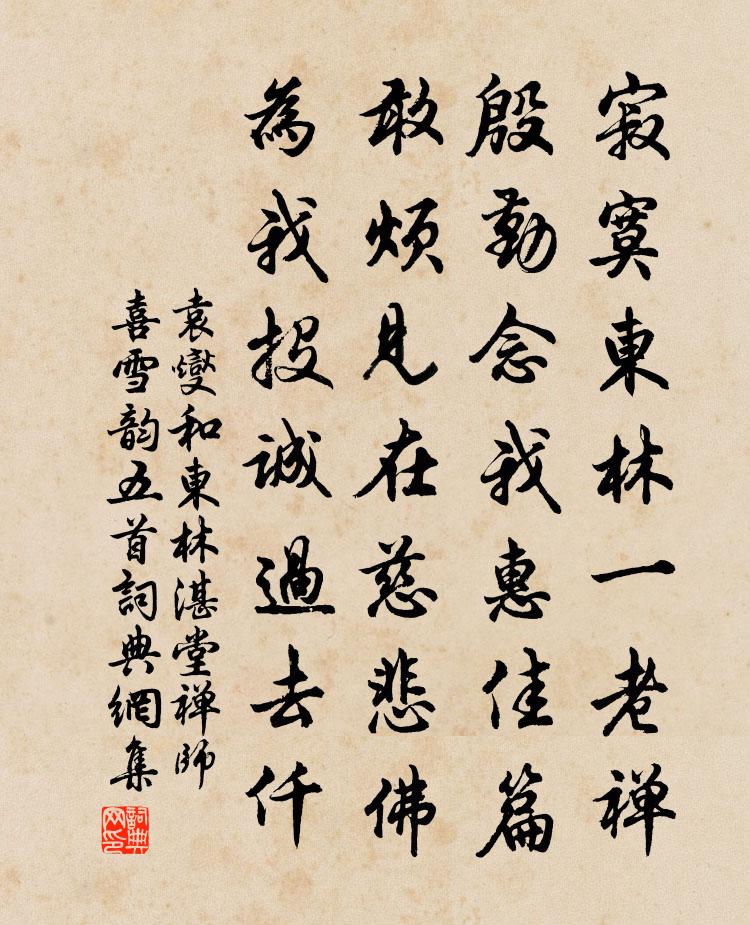 寂寞東林一老禅
殷勤念我惠佳篇
敢煩見在慈悲佛
為我投誠過去仟
袁燮和東林湛堂禅師
喜雪韵五首詞典網集
詞典网印